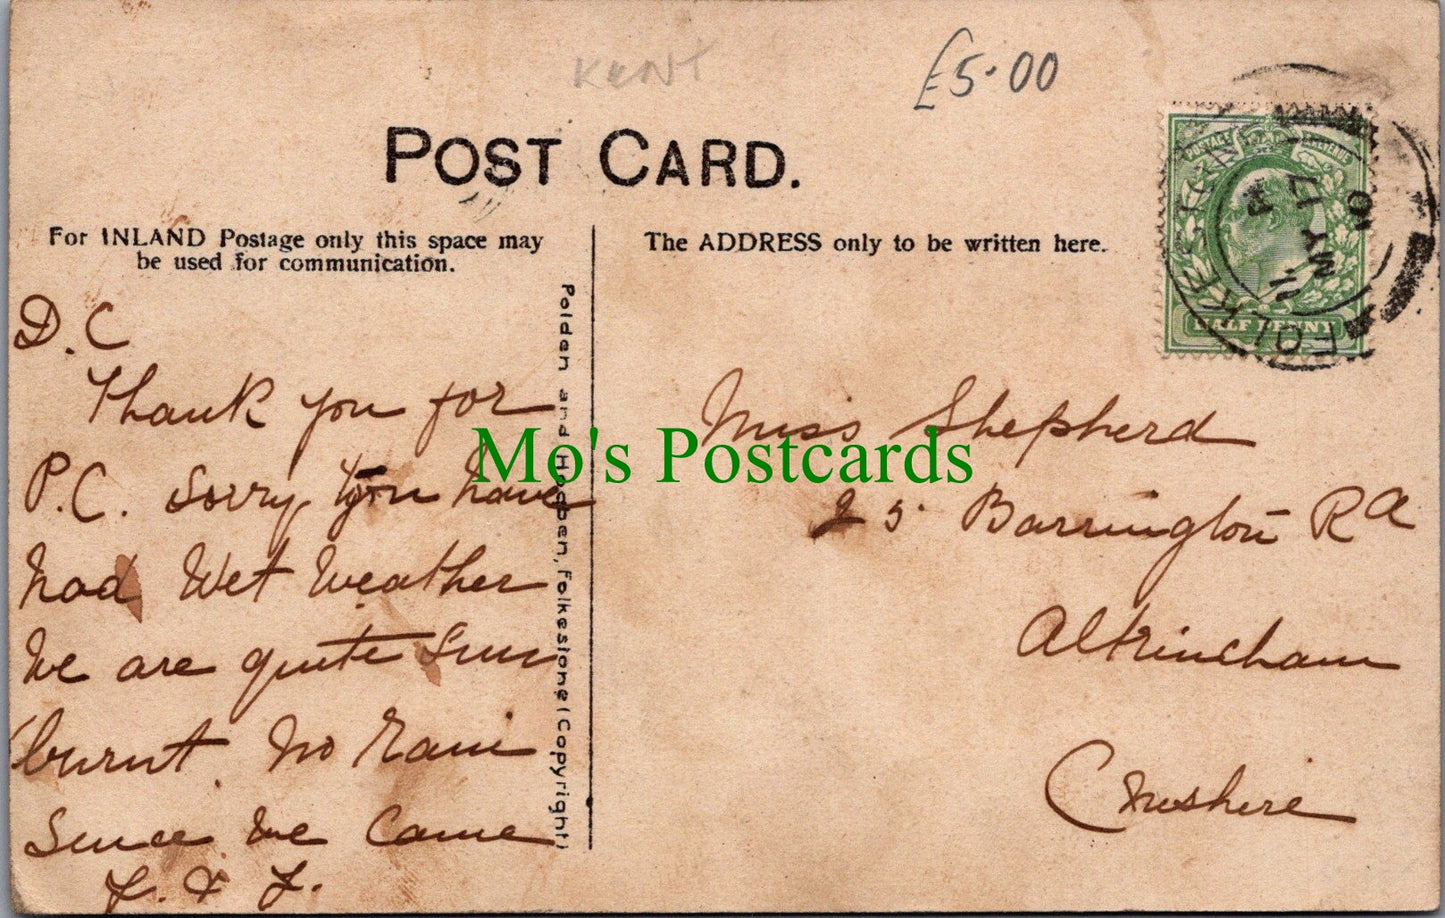 KENT
£5.00
POST CARD.
For INLAND Postage only this space may
be used for communication.
The ADDRESS only to be written here.
POSTAGE
HALF PENNY
FOLKESTONE
MY 17
10
D.C
Thank you for
P.C. sorry, you have
had Wet Weather
We are quite Sun
burnt. No Rain
Since we came
Polden and Hogben, Folkestone (Copyright)
Miss Shepherd
25 Barrington Rd
Altrincham
Cheshire
Mo's Postcards